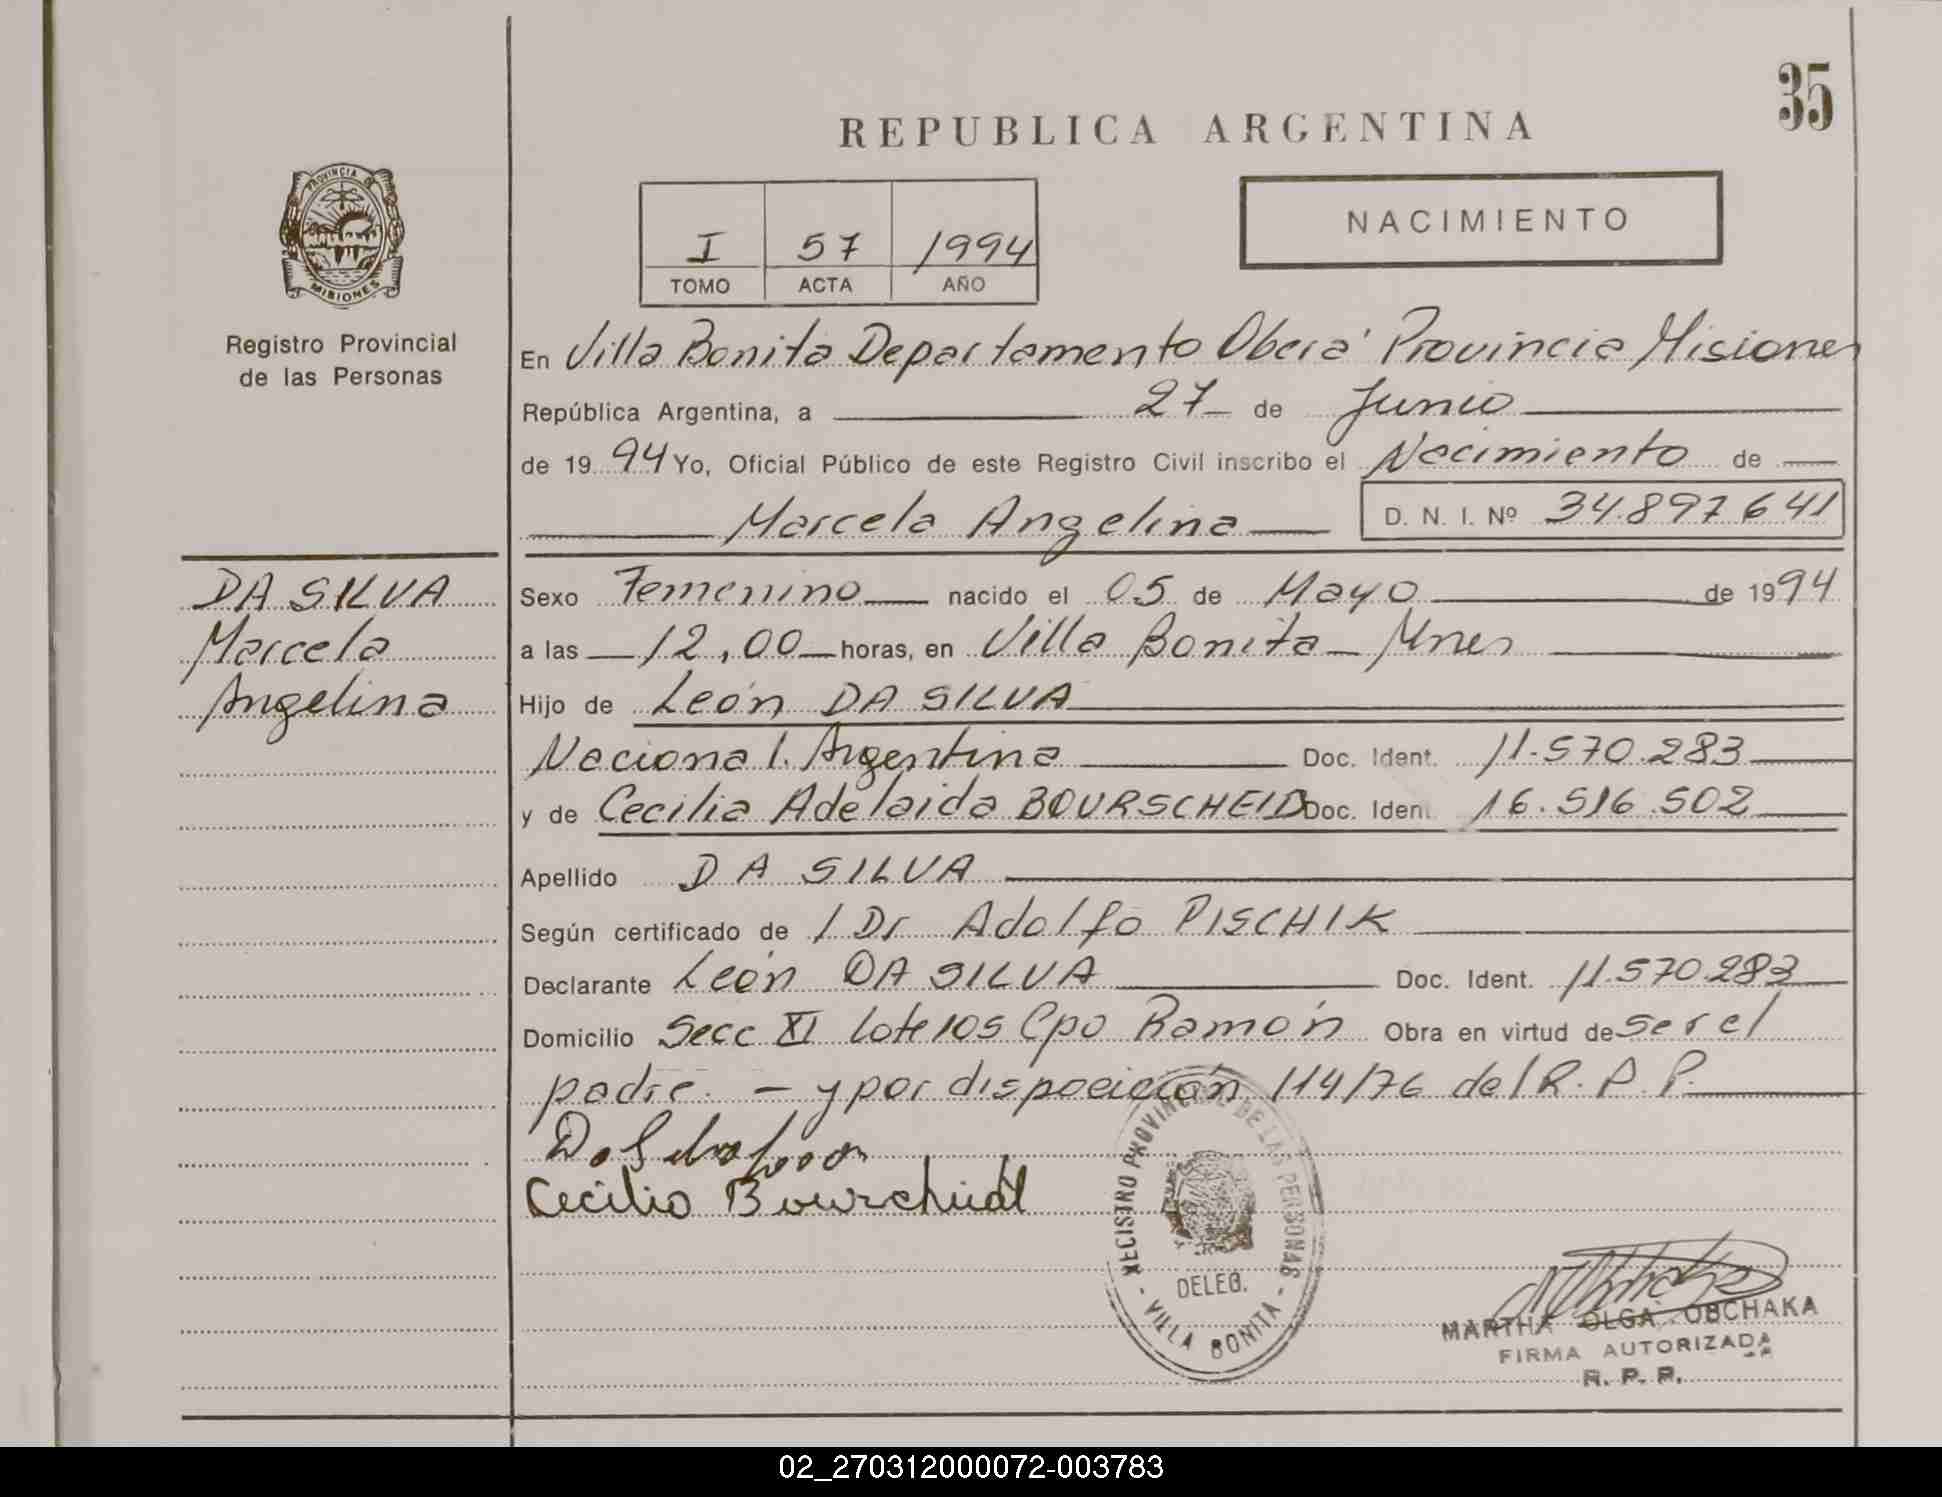 35
REPUBLICA ARGENTINA
PROVINCIA DE
MISIONES
Registro Provincial
de las Personas
I 57 1994
TOMO ACTA AÑO
NACIMIENTO
En Villa Bonita Departamento Oberá Provincia Misiones
República Argentina, a 27 de Junio
de 1994 Yo, Oficial Público de este Registro Civil inscribo el Nacimiento de
Marcela Angelina D. N. I. Nº 34.897641
DA SILVA
Marcela
Angelina
Sexo Femenino nacido el 05 de Mayo de 1994
a las 12,00 horas, en Villa Bonita Mnes
Hijo de León DA SILVA
Nacional. Argentina Doc. Ident. 11.570.283
y de Cecilia Adelaida BOURSCHEID Doc. Iden. 16.516.502
Apellido DA SILVA
Según certificado de / Dr Adolfo PISCHIK
Declarante León DA SILVA Doc. Ident. 11.570.283
Domicilio Secc XI Lote 105 Cpo Ramón Obra en virtud de ser el
padre. - y por disposición 114/76 del R. P. P.
Cecilia
REGISTRO PROVINCIAL DE LAS PERSONAS
DELEG.
- VILLA BONITA -
MARTHA OLGA OBCHAKA
FIRMA AUTORIZADA
R. P. P.
02_270312000072-003783